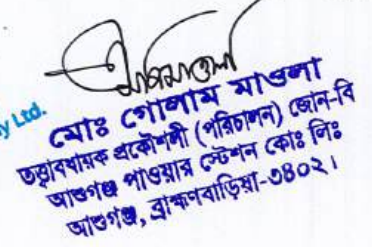 y Ltd.
মোঃ গোলাম মাওলা
তত্ত্বাবধায়ক প্রকৌশলী (পরিচালন) জোন-বি
আশুগঞ্জ পাওয়ার স্টেশন কোঃ লিঃ
আশুগঞ্জ, ব্রাহ্মণবাড়িয়া-৩৪০২।